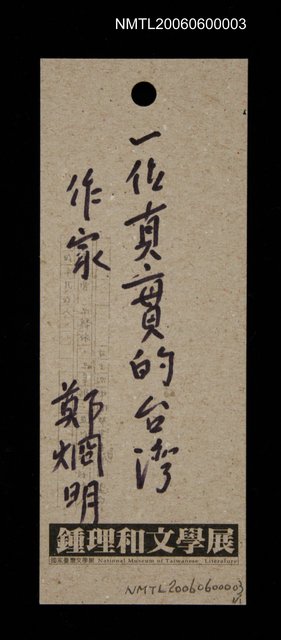 NMTL20060600003
一位真實的台灣
作家
鄭烱明
鍾理和文學展
國家臺灣文學館 National Museum of Taiwanese Literature
NMTL20060600003